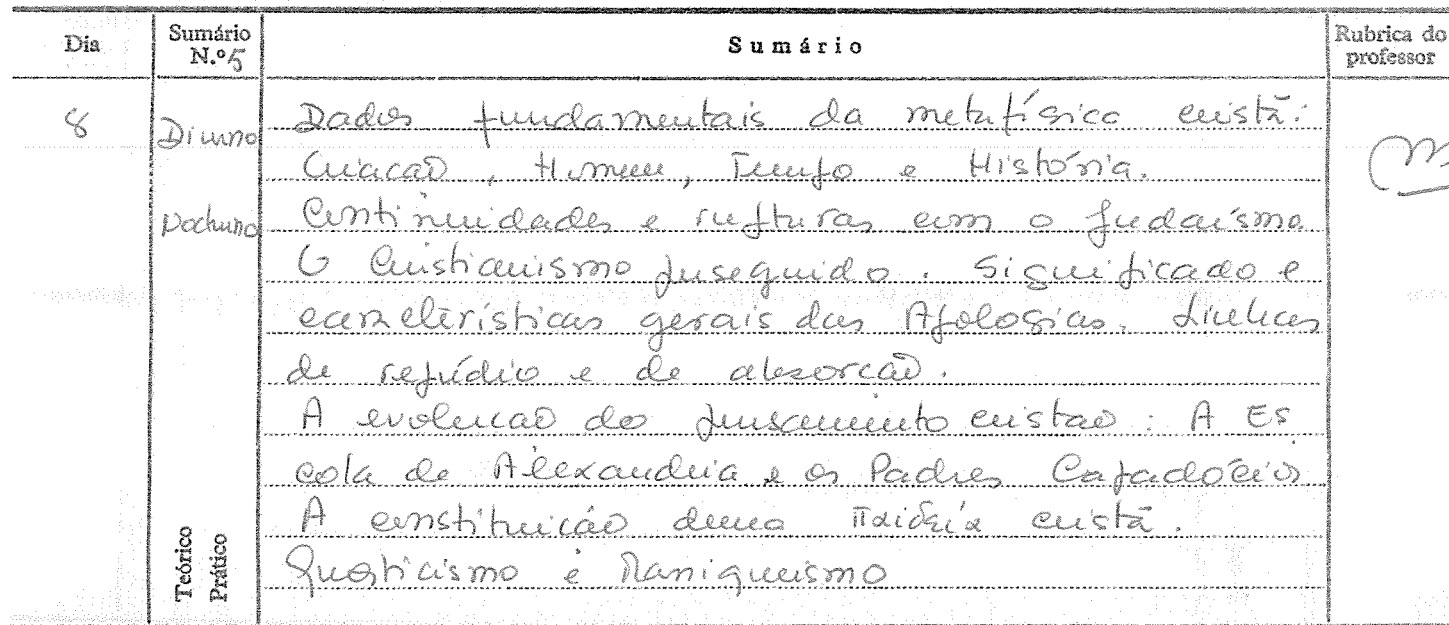 Dia
Sumário N.º 5
Sumário
Rubrica do professor
8
Diurno
Dados fundamentais da metafísica cristã:
Criação, Homem, Tempo e História.
Nocturno
Continuidades e rupturas com o Judaísmo
O Cristianismo perseguido. Significado e
características gerais das Apologias. Linhas
de repúdio e de absorção.
A evolução do pensamento cristão: A Es
cola de Alexandria e os Padres Capadócios
A constituição duma παιδεία cristã.
Gnosticismo e Maniqueismo
Teórico
Prático